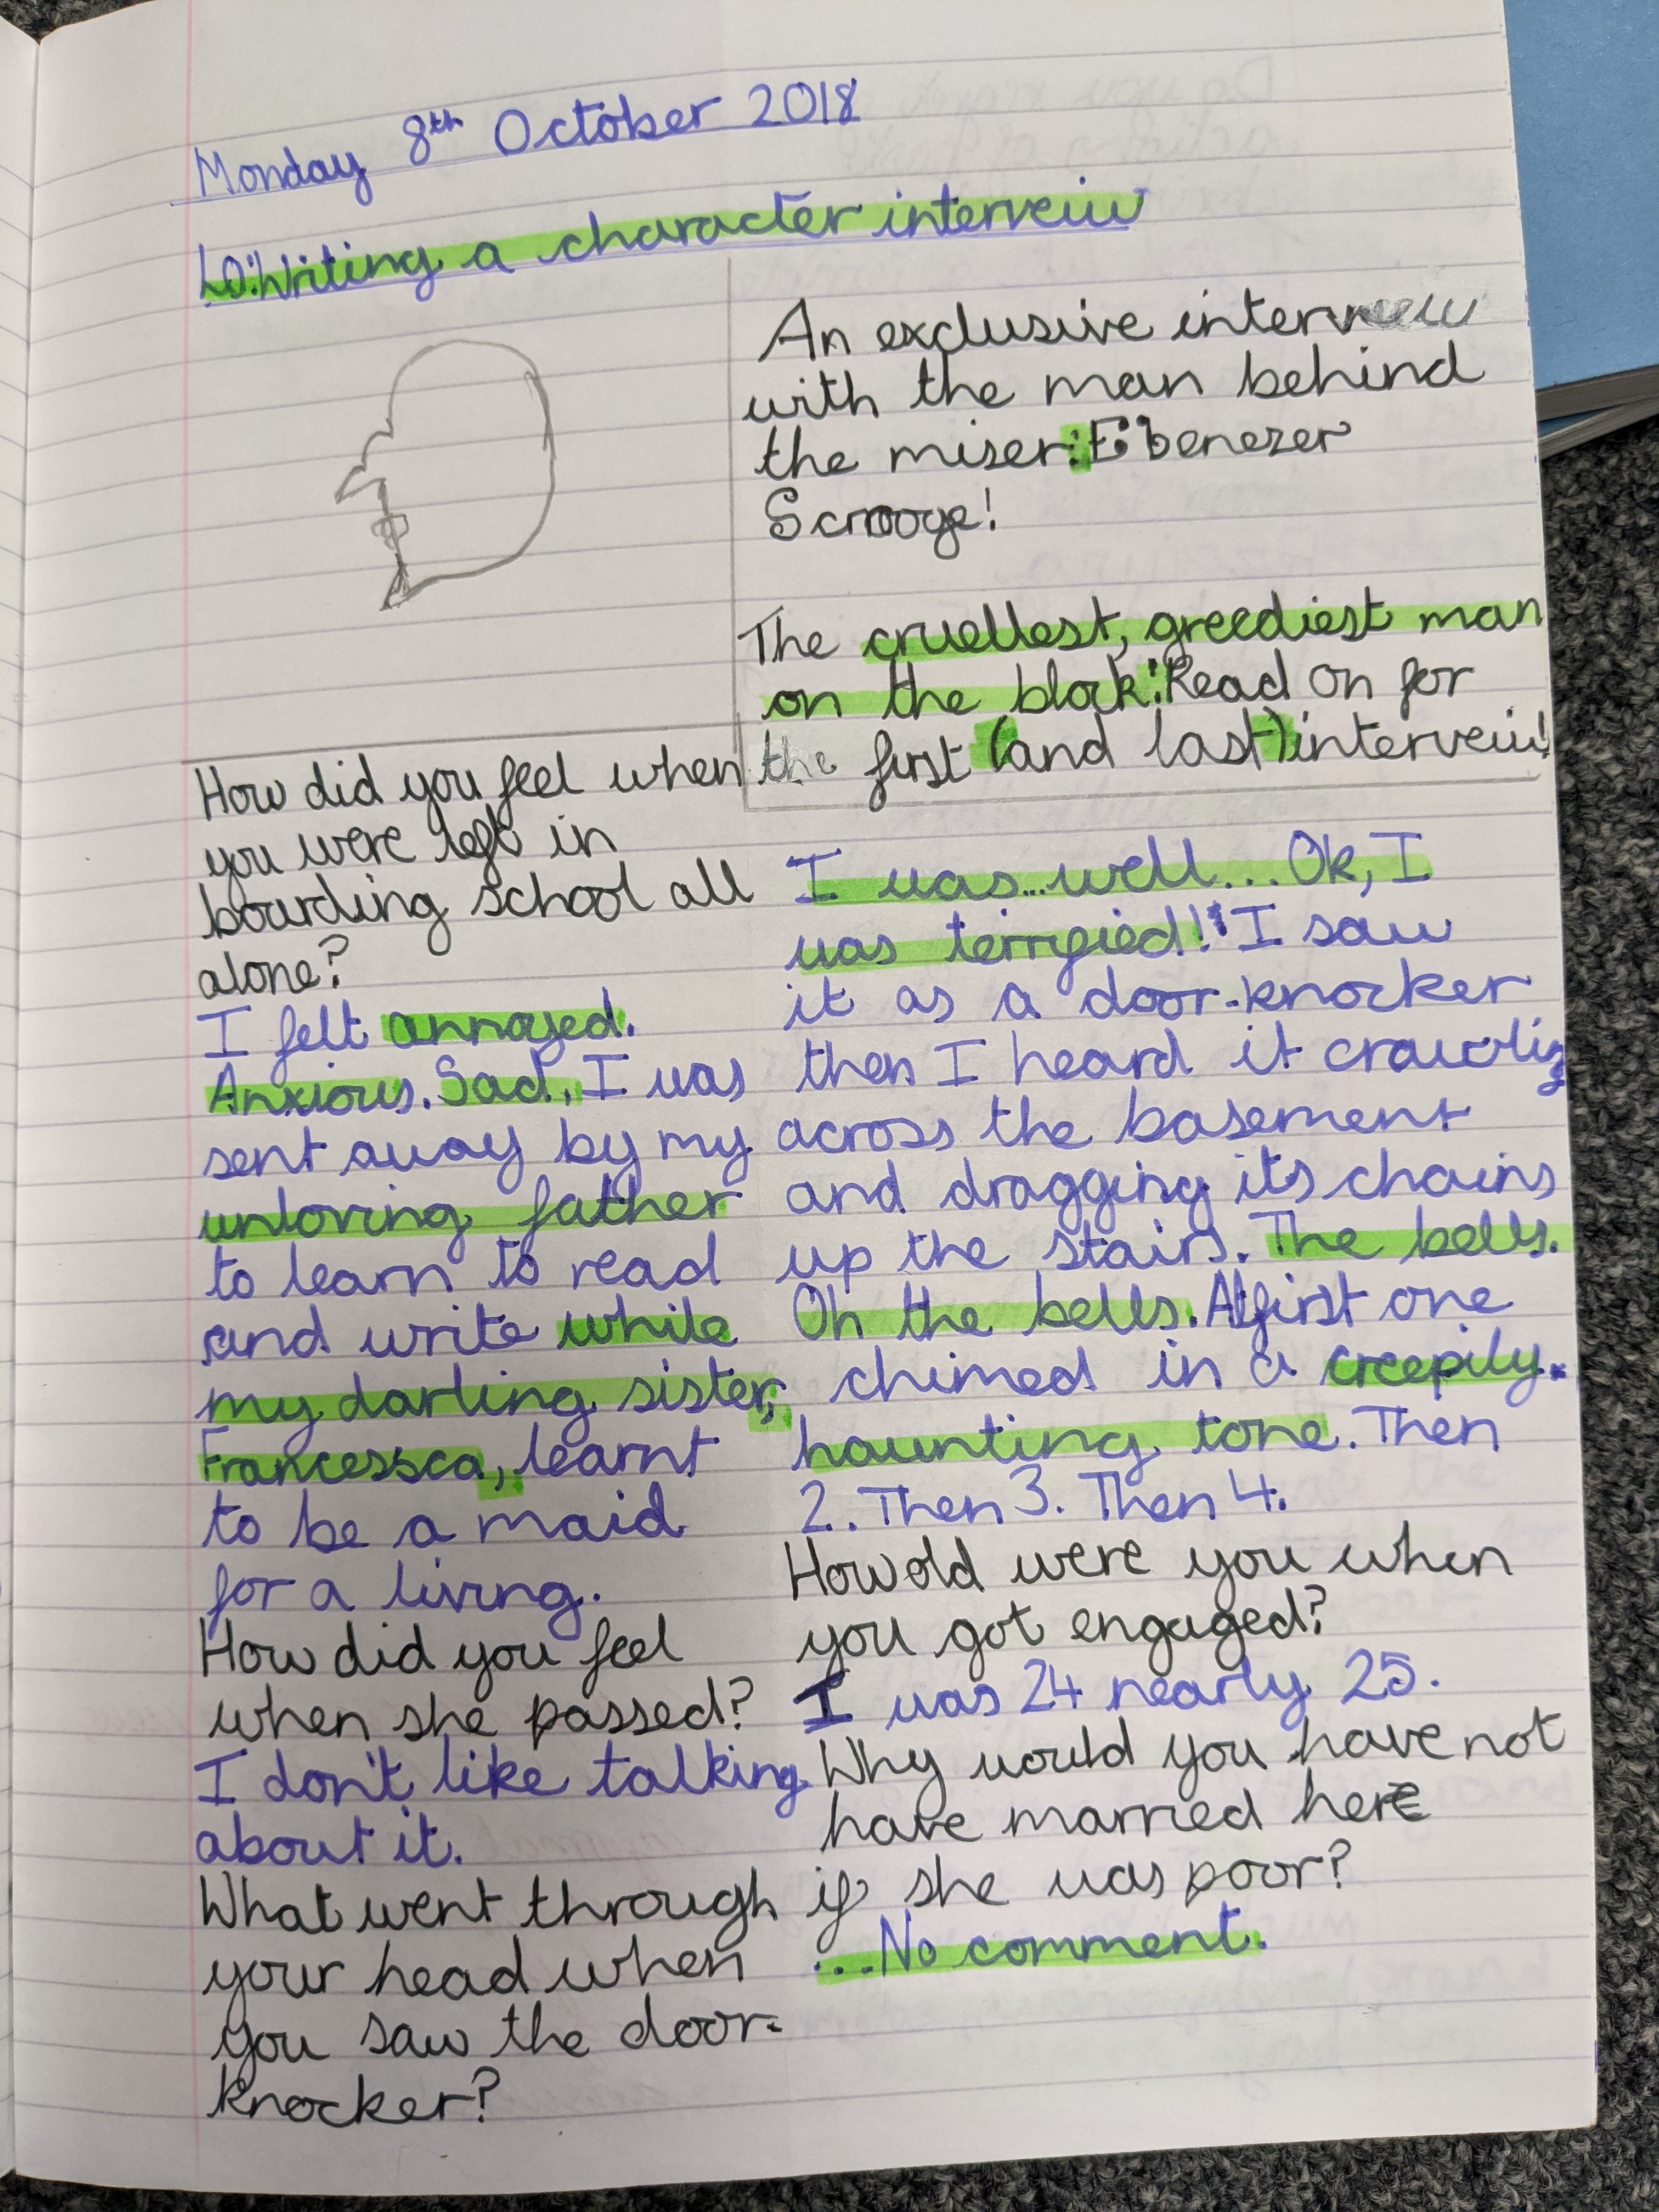 Monday 8th October 2018
LO: Writing a character interveiw
An exclusive interveiw
with the man behind
the miser: Ebenezer
Scrooge!
The cruellest, greediest man
on the block! Read on for
the first (and last) interveiw!
How did you feel when
you were left in
boarding school all
alone?
I felt annoyed.
Anxious. Sad. I was
sent away by my
unloving father
to learn to read
and write while
my darling sister,
Francessca, learnt
to be a maid
for a living.
How did you feel
when she passed?
I don't like talking
about it.
What went through
your head when
you saw the door-
knocker?
I was... well... Ok, I
was terrified! I saw
it as a door-knocker
then I heard it crawling
across the basement
and dragging its chains
up the stairs. The bells.
Oh the bells. At first one
chimed in a creepily-
haunting tone. Then
2. Then 3. Then 4.
How old were you when
you got engaged?
I was 24 nearly 25.
Why would you have not
have married here
if she was poor?
...No comment.